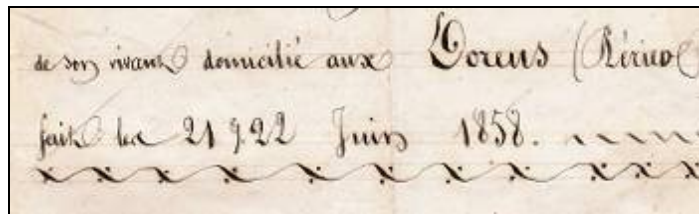 de son vivant domicilié aux Doreus
fait les 21 & 22 Juin 1858.